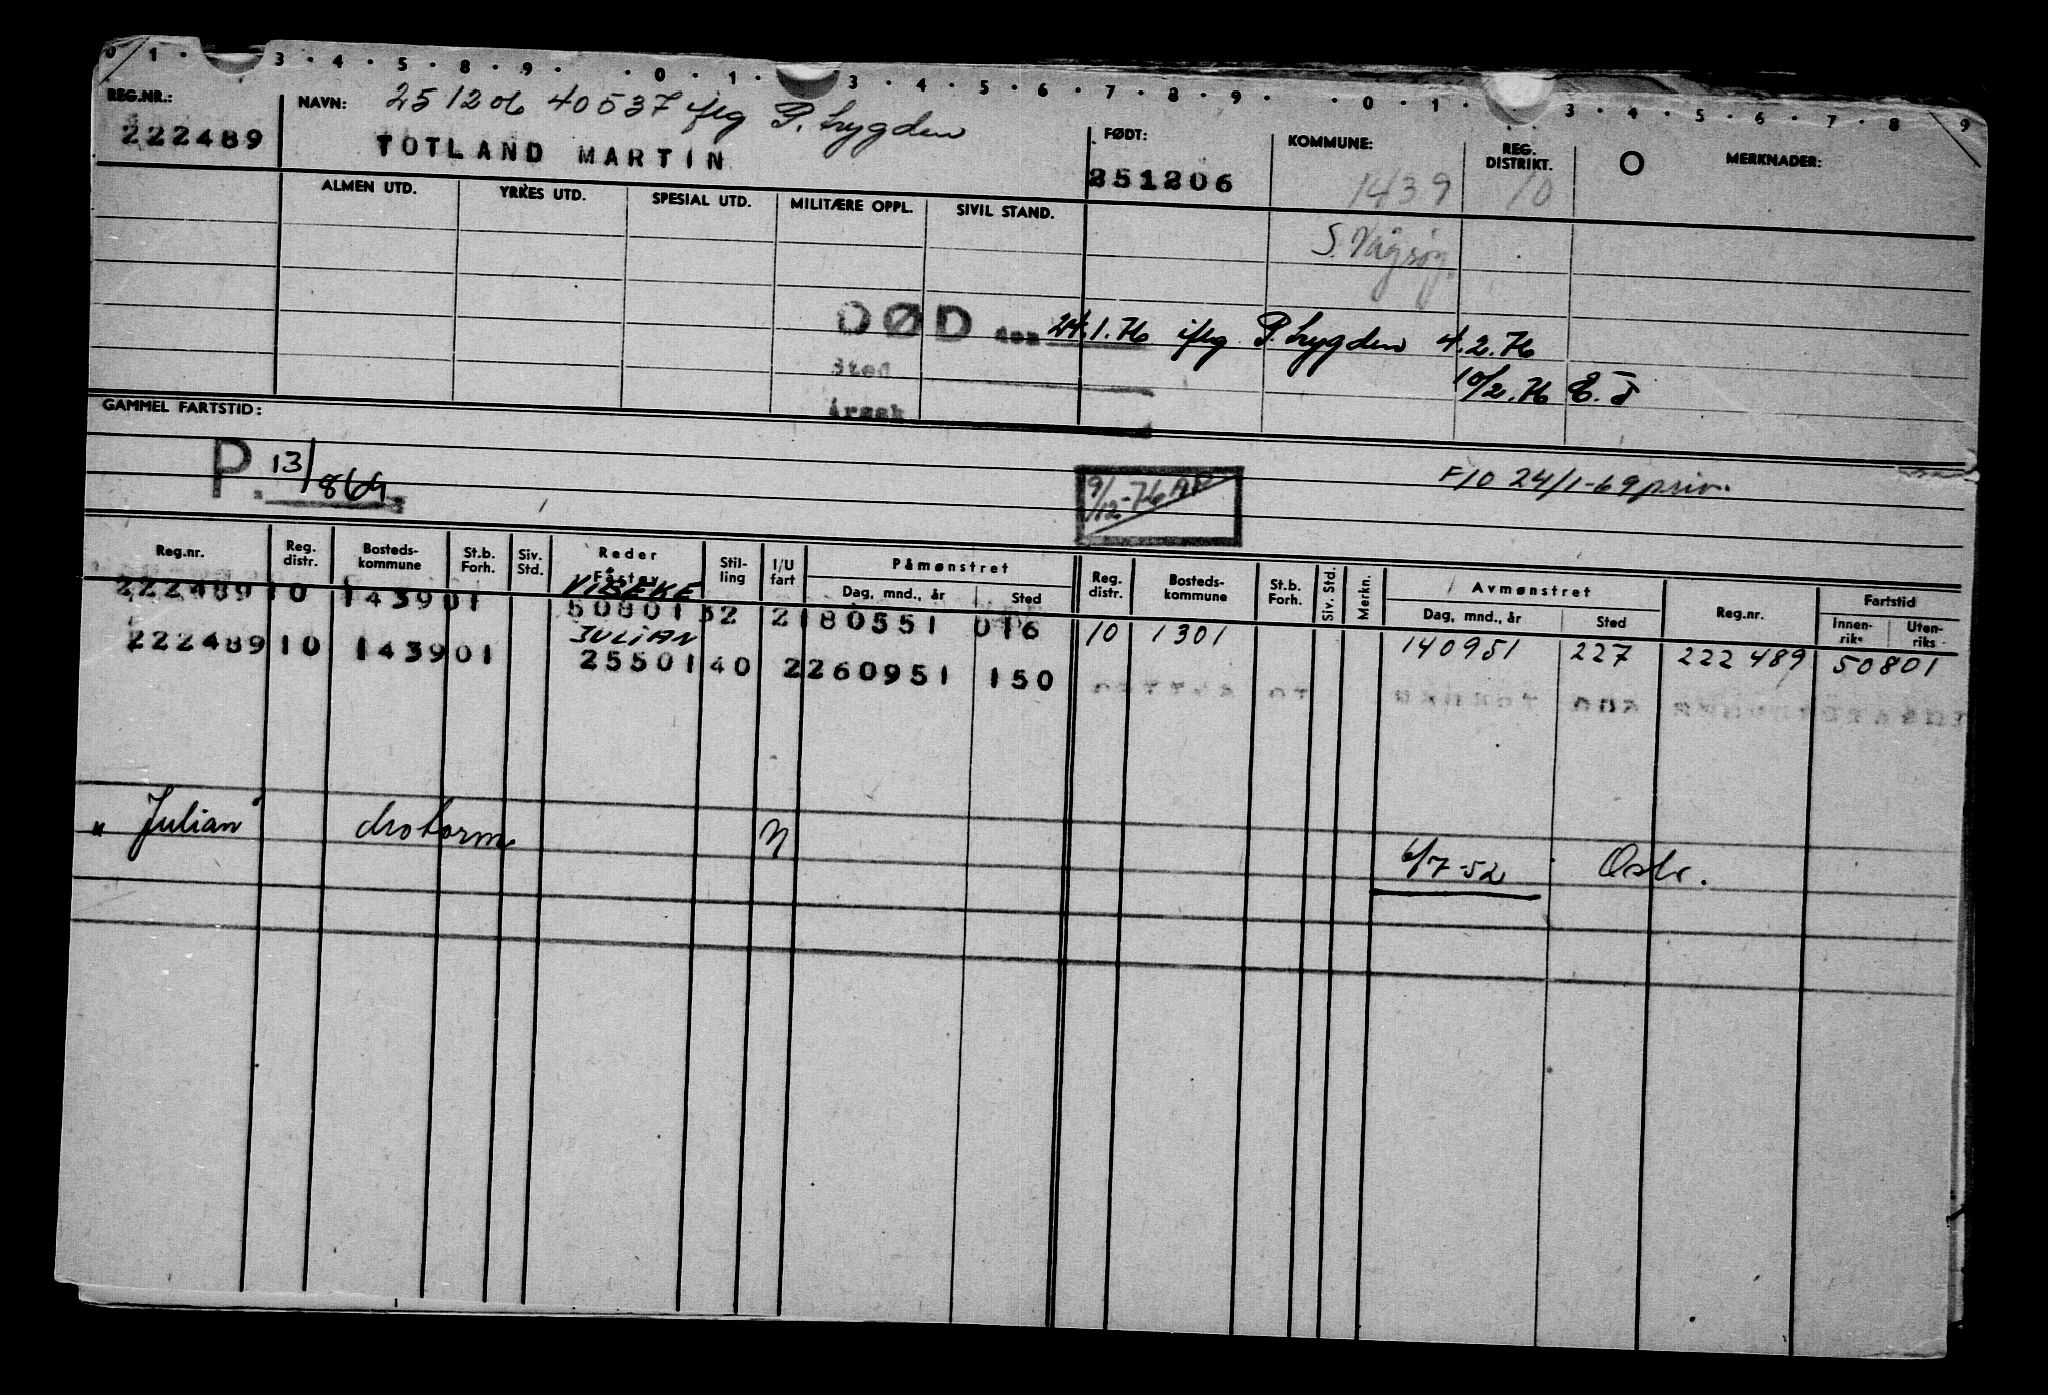 0 1 · 3 · 4 · 5 · 8 · 9 · · 0 · 1 · 3 · 4 · 5 · 6 · 7 · 8 · 9 · · 0 · 1 · 3 · 4 · 5 · 6 · 7 · 8 9
REG.NR.: NAVN: 251206 40537 iflg P. trygden FØDT: KOMMUNE: REG. DISTRIKT. O MERKNADER:
222489 TOTLAND MARTIN 251206 1439 10
ALMEN UTD. YRKES UTD. SPESIAL UTD. MILITÆRE OPPL. SIVIL STAND.
S. Vågsøy.
DØD den 24.1.76 iflg P. trygden 4.2.76
Sted 10/2.76 E.T
Årsak
GAMMEL FARTSTID:
P. 13/864 9/12-76 AP F10 24/1-69 priv.
Reg.nr. Reg. distr. Bosteds-kommune St.b. Forh. Siv. Std. Reder Fartøy Stil-ling I/U fart Påmønstret Dag, mnd., år Sted Reg. distr. Bosteds-kommune St.b. Forh. Siv. Std. Merkn. Avmønstret Dag, mnd., år Sted Reg.nr. Fartstid Innen-riks Uten-riks
VIBEKE
222489 10 1439 01 50801 32 2 180551 016 10 1301 140951 227 222489 50801
JULIAN
222489 10 1439 01 25501 40 2 260951 150
"Julian" motorm. 6/7-52 Oslo.